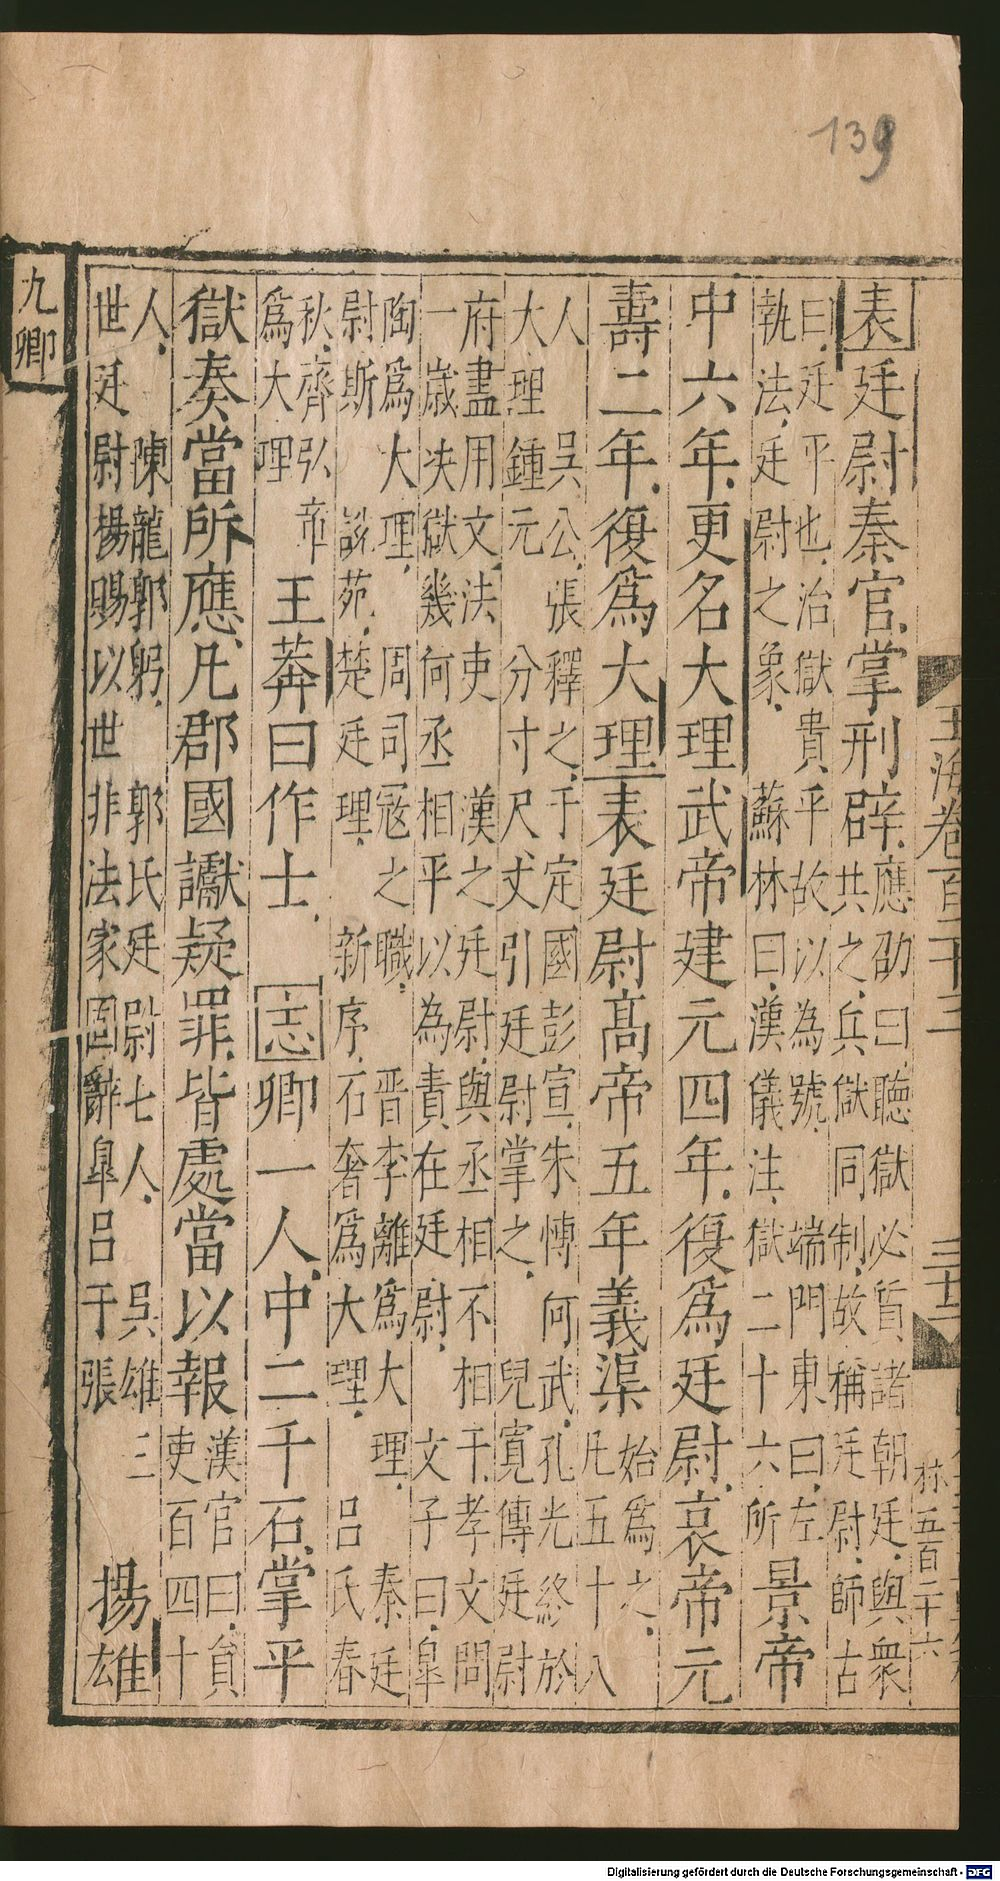 139
玉海卷百二十三
三十一
林五百二十六
表廷尉秦官掌刑辟應劭曰聽獄必質諸朝廷與衆
共之兵獄同制故稱廷尉師古
曰廷平也治獄貴平故以為號端門東曰左
執法廷尉之象蘇林曰漢儀注獄二十六所景帝
中六年更名大理武帝建元四年復爲廷尉哀帝元
壽二年復爲大理表廷尉高帝五年義渠始爲之
凡五十八
人吳公張釋之于定國彭宣朱慱何武孔光終於
大理鍾元分寸尺丈引廷尉掌之兒寬傳廷尉
府盡用文法吏漢之廷尉與丞相不相干孝文問
一歲决獄幾何丞相平以為責在廷尉文子曰臯
陶爲大理周司寇之職晉李離爲大理秦廷
尉斯說苑楚廷理新序石奢爲大理呂氏春
秋齊弘章
爲大理王莽曰作士志卿一人中二千石掌平
獄奏當所應凡郡國讞疑罪皆處當以報漢官曰貟
吏百四十
人陳龍郭躬郭氏廷尉七人吳雄三
世廷尉楊賜以世非法家固辭臯呂于張揚雄
九卿
Digitalisierung gefördert durch die Deutsche Forschungsgemeinschaft - DFG